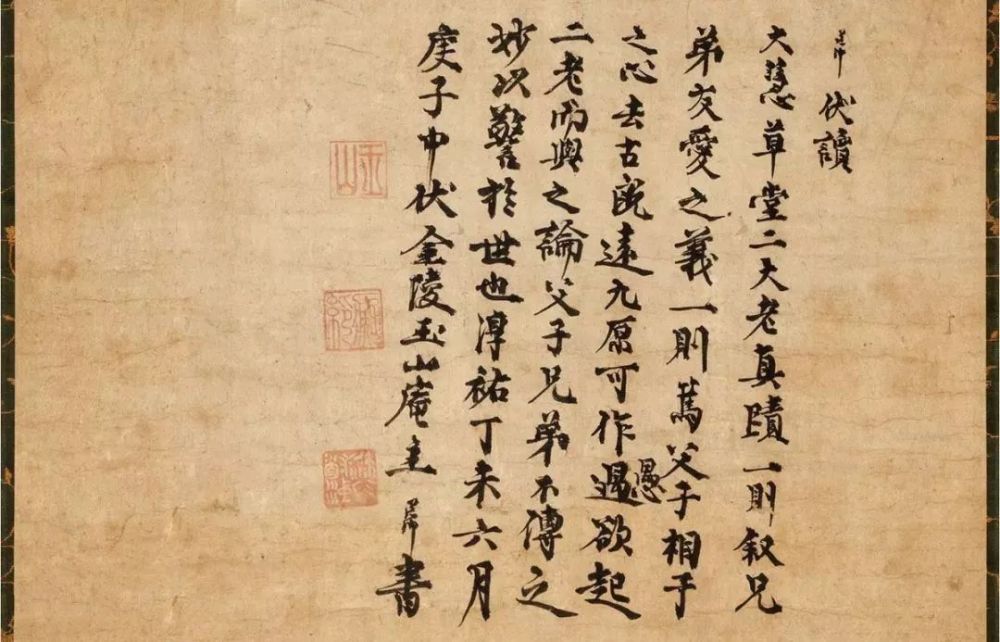 伏讀
大慧草堂二大老真蹟一則叙兄
弟友愛之義一則篤父子相于
之心去古既遠九原可作愚欲起
二老而與之論父子兄弟不傳之
妙以警於世也淳祐丁未六月
庚子中伏金陵玉山庵主書
玉山
癡絕